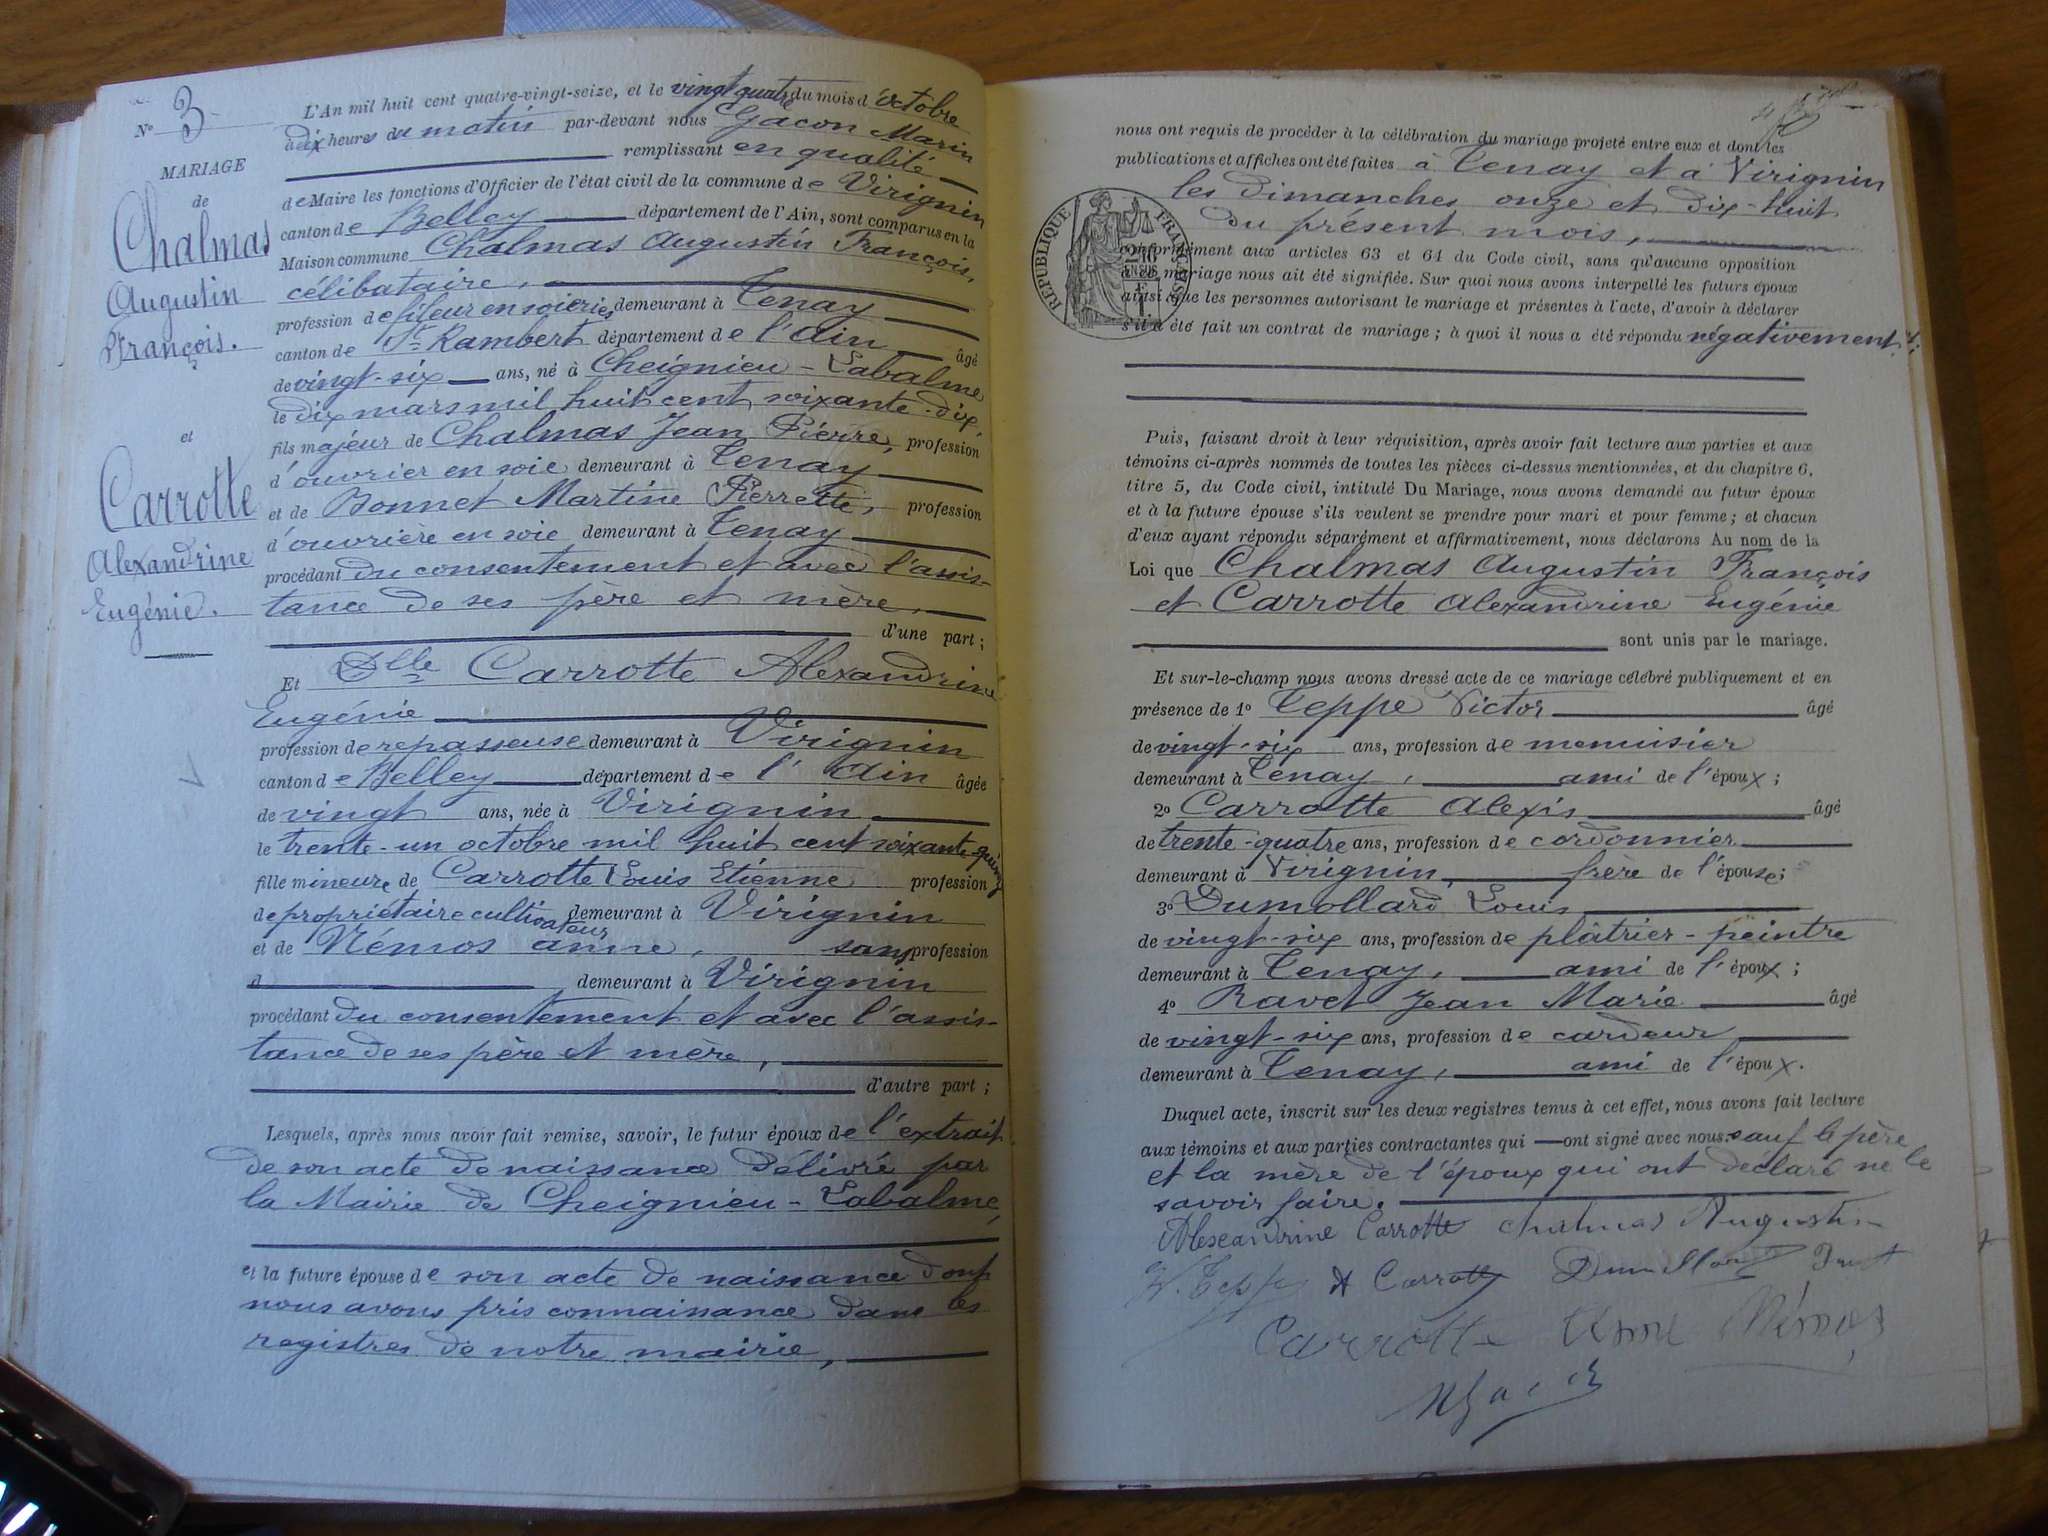 N° 3
MARIAGE
de
Chalmas
Augustin
François.
et
Carrotte
Alexandrine
Eugénie.
L'An mil huit cent quatre-vingt-seize, et le vingt quatre du mois d'octobre
à dix heures du matin par-devant nous Gacon Marin
remplissant en qualité
de Maire les fonctions d'Officier de l'état civil de la commune de Virignin
canton de Belley département de l'Ain, sont comparus en la
Maison commune Chalmas Augustin François,
célibataire,
profession de fileur en soieries demeurant à Tenay
canton de St Rambert département de l'Ain âgé
de vingt-six ans, né à Cheignieu-Labalme
le dix mars mil huit cent soixante-dix,
fils majeur de Chalmas Jean Pierre, profession
d'ouvrier en soie demeurant à Tenay
et de Bonnet Martine Pierrette, profession
d'ouvrière en soie demeurant à Tenay
procédant du consentement et avec l'assis-
tance de ses père et mère,
d'une part ;
Et Dlle Carrotte Alexandrine
Eugénie
profession de repasseuse demeurant à Virignin
canton de Belley département de l'Ain âgée
de vingt ans, née à Virignin
le trente-un octobre mil huit cent soixante-quinze
fille mineure de Carrotte Louis Etienne profession
de propriétaire cultivateur demeurant à Virignin
et de Némos anne, sans profession
d demeurant à Virignin
procédant du consentement et avec l'assis-
tance de ses père et mère,
d'autre part ;
Lesquels, après nous avoir fait remise, savoir, le futur époux de l'extrait
de son acte de naissance délivré par
la Mairie de Cheignieu-Labalme,
et la future épouse de son acte de naissance dont
nous avons pris connaissance dans les
registres de notre mairie,
nous ont requis de procéder à la célébration du mariage projeté entre eux et dont les
publications et affiches ont été faites à Tenay et à Virignin
les dimanches onze et dix-huit
du présent mois,
RÉPUBLIQUE FRANÇAISE
conformément aux articles 63 et 64 du Code civil, sans qu'aucune opposition
à ce mariage nous ait été signifiée. Sur quoi nous avons interpellé les futurs époux
ainsi que les personnes autorisant le mariage et présentes à l'acte, d'avoir à déclarer
s'il a été fait un contrat de mariage ; à quoi il nous a été répondu négativement ;
Puis, faisant droit à leur réquisition, après avoir fait lecture aux parties et aux
témoins ci-après nommés de toutes les pièces ci-dessus mentionnées, et du chapitre 6,
titre 5, du Code civil, intitulé Du Mariage, nous avons demandé au futur époux
et à la future épouse s'ils veulent se prendre pour mari et pour femme ; et chacun
d'eux ayant répondu séparément et affirmativement, nous déclarons Au nom de la
Loi que Chalmas Augustin François
et Carrotte Alexandrine Eugénie
sont unis par le mariage.
Et sur-le-champ nous avons dressé acte de ce mariage célébré publiquement et en
présence de 1° Teppe Victor âgé
de vingt-six ans, profession de menuisier
demeurant à Tenay, ami de l'époux ;
2° Carrotte Alexis âgé
de trente-quatre ans, profession de cordonnier
demeurant à Virignin, frère de l'épouse ;
3° Dumollard Louis
de vingt-six ans, profession de plâtrier-peintre
demeurant à Tenay, ami de l'époux ;
4° Ravet Jean Marie âgé
de vingt-six ans, profession de cardeur
demeurant à Tenay, ami de l'époux.
Duquel acte, inscrit sur les deux registres tenus à cet effet, nous avons fait lecture
aux témoins et aux parties contractantes qui ont signé avec nous. sauf le père
et la mère de l'époux qui ont déclaré ne le
savoir faire.
Alexandrine Carrotte Chalmas Augustin
V. Teppe A Carrotte Dumollard
Carrotte Anne Némos